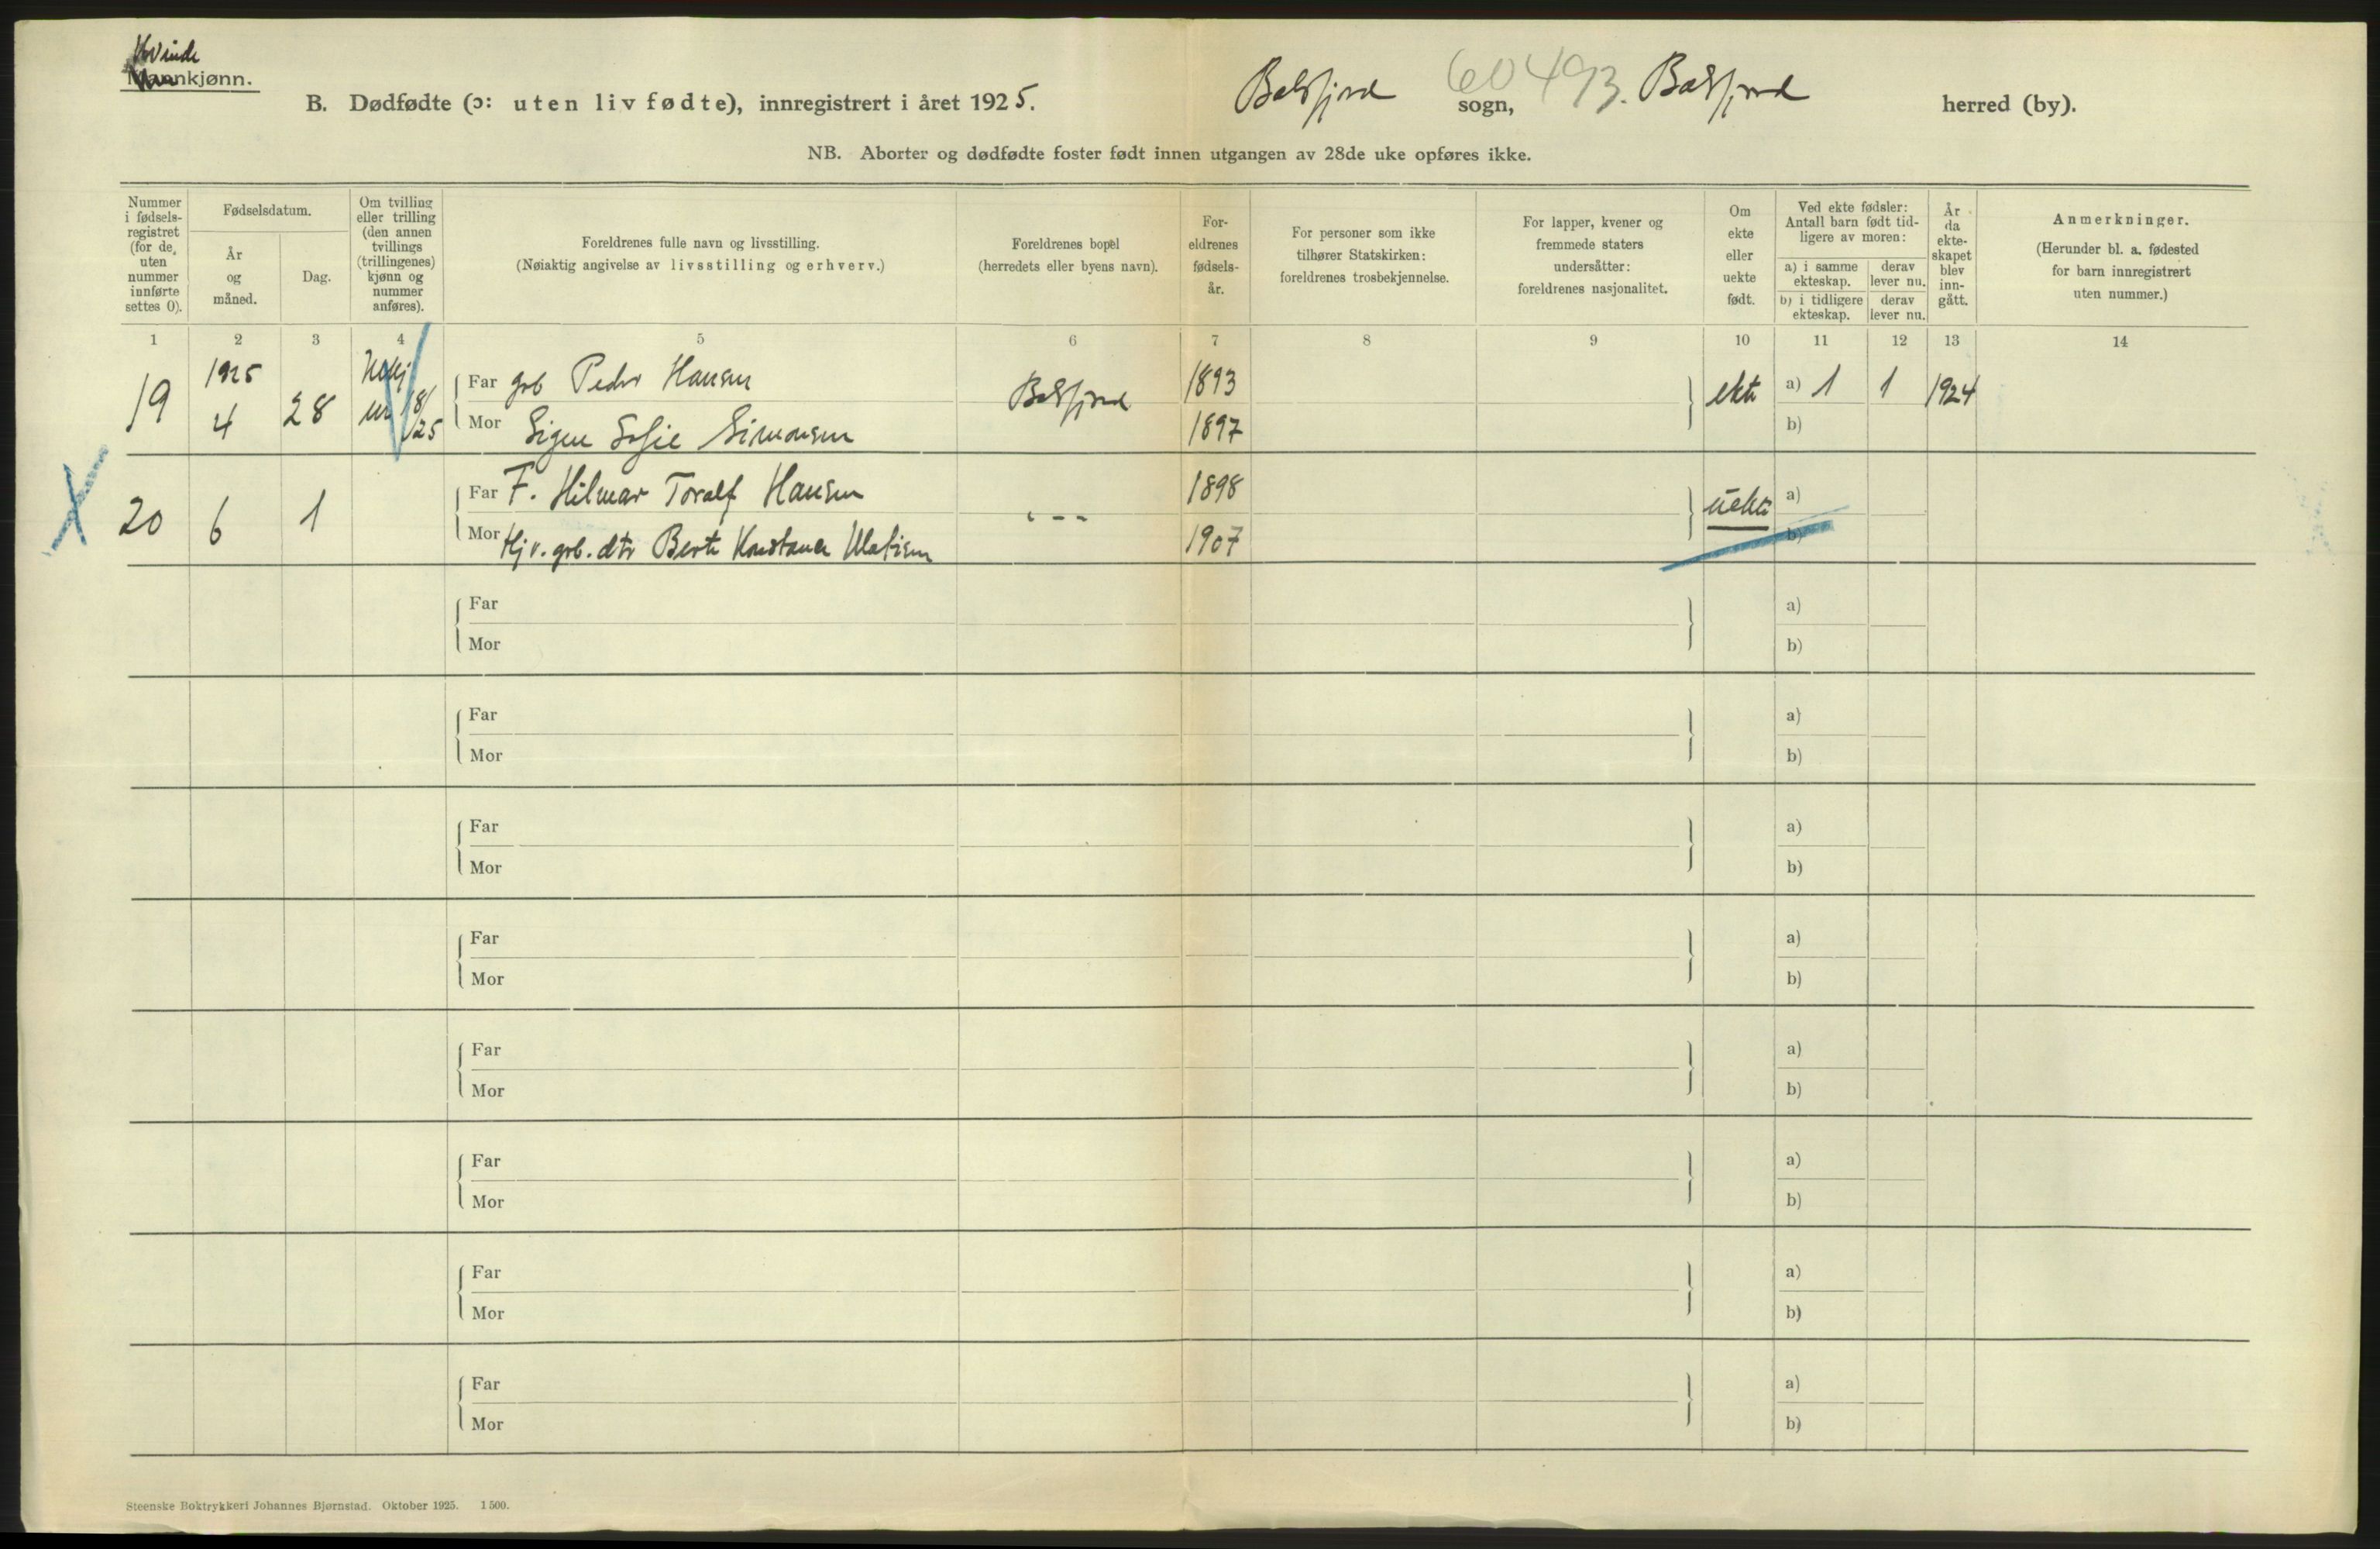 Kvinde
Mannkjønn.
B. Dødfødte (ɔ: uten liv fødte), innregistrert i året 1925.
Balsfjord sogn, Balsfjord herred (by).
60 493.
NB. Aborter og dødfødte foster født innen utgangen av 28de uke opføres ikke.
Nummer
i fødsels-
registret
(for de
uten
nummer
innførte
settes 0).
Fødselsdatum.
År
og
måned.
Dag.
Om tvilling
eller trilling
(den annen
tvillings
(trillingenes)
kjønn og
nummer
anføres).
Foreldrenes fulle navn og livsstilling.
(Nøiaktig angivelse av livsstilling og erhverv.)
Foreldrenes bopel
(herredets eller byens navn).
For-
eldrenes
fødsels-
år.
For personer som ikke
tilhører Statskirken:
foreldrenes trosbekjennelse.
For lapper, kvener og
fremmede staters
undersåtter:
foreldrenes nasjonalitet.
Om
ekte
eller
uekte
født.
Ved ekte fødsler:
Antall barn født tid-
ligere av moren:
a) i samme
ekteskap.
derav
lever nu.
b) i tidligere
ekteskap.
derav
lever nu.
År
da
ekte-
skapet
blev
inn-
gått.
Anmerkninger.
(Herunder bl. a. fødested
for barn innregistrert
uten nummer.)
1 2 3 4 5 6 7 8 9 10 11 12 13 14
19 1925 4 28 18/25 Far grb Peder Hansen Balsfjord 1893 ekte a) 1 1 1924
Mor Signe Sofie Simonsen 1897 b)
X 20 6 1 Far F. Hilmar Toralf Hansen 1898 uekte a)
Mor Hj v. grb. dtr Berte Konstance 1907 b)
Far a)
Mor b)
Far a)
Mor b)
Far a)
Mor b)
Far a)
Mor b)
Far a)
Mor b)
Far a)
Mor b)
Far a)
Mor b)
Far a)
Mor b)
Steenske Boktrykkeri Johannes Bjørnstad. Oktober 1925. 1500.